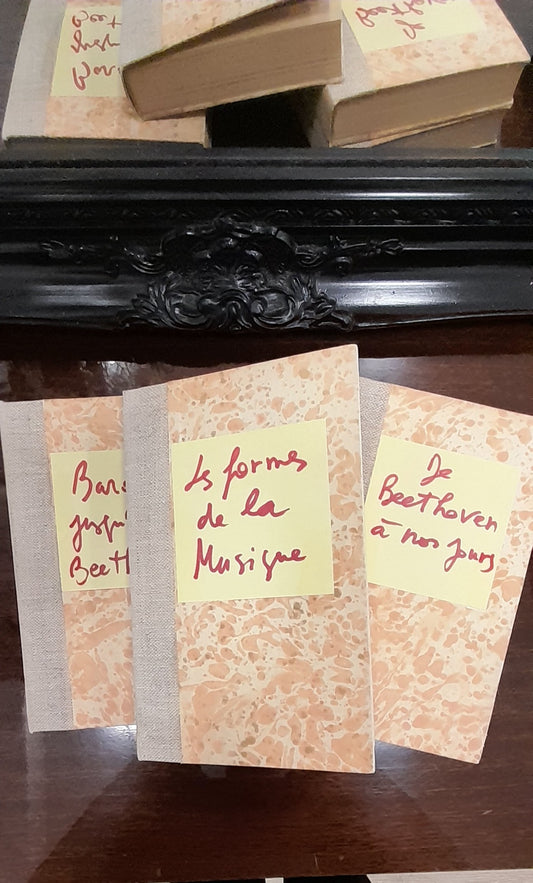 Baro
jusqu
Beeth
Les formes
de la
Musique
De
Beethoven
à nos jours